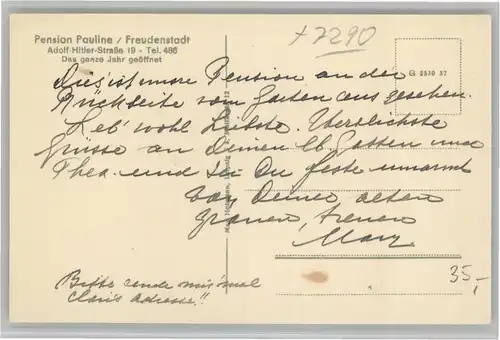 Pension Pauline / Freudenstadt
Adolf-Hitler-Straße 19 - Tel. 486
Das ganze Jahr geöffnet
+7290
G 2530 37
Dies ist unsre Pension an der
Rückseite vom Garten aus gesehen.
Leb' wohl Liebste. Herzlichste
Grüsse an Deinen lb. Gatten und
Thea und sei Du feste umarmt
von Deiner alten
grauen, treuen
Mary.
35,-
Bitte sende mir 'mal
Claris Adresse!!